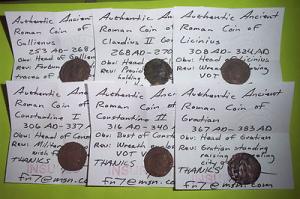 Authentic Ancient
Roman Coin of
Gallienus
253 AD-268
Obv: Head of Gallien
Rev:
traces of
Authentic Ancient
Roman Coin of
Claudius II
268 AD-270
Obv: Head of
Rev:
holding
Authentic Ancient
Roman Coin of
Licinius
308 AD-324 AD
Obv: Head of Licinius
Rev: Wreath
VOT
Authentic Ancient
Roman Coin of
Constantine I
306 AD-337
Obv: Head of Cons
Rev: Milit
with
THANKS
fn7@msn.com
Authentic Ancient
Roman Coin of
Constantine II
316 AD-340
Obv: Bust of Const
Rev: Wreath
VOT
THANKS
fn7@msn.com
Authentic Ancient
Roman Coin of
Gratian
367 AD-383 AD
Obv: Head of Gratian
Rev: Gratian standing
raising kneeling
city
THANKS
fn7@msn.com